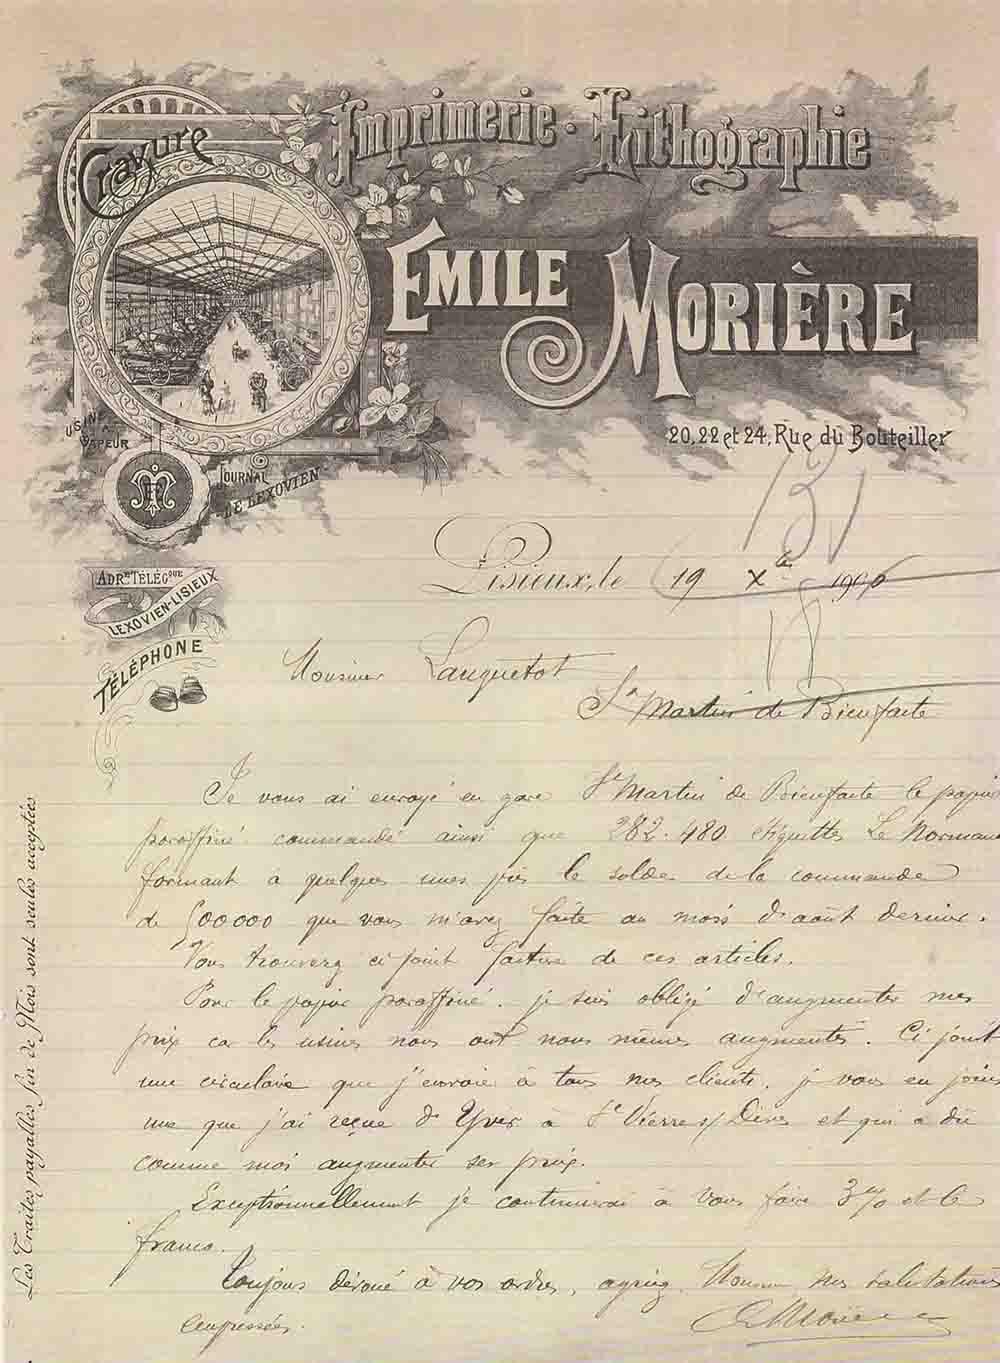 Imprimerie · Lithographie
Gravure
ÉMILE MORIÈRE
20, 22 et 24, Rue du Bouteiller
USINE À VAPEUR
EM
JOURNAL LE LEXOVIEN
ADR.SSE TÉLÉG.QUE
LEXOVIEN-LISIEUX
TÉLÉPHONE
131
Lisieux, le 19 Xbre 1906
18
Monsieur Lanquetot
St Martin de Bienfaite
Je vous ai envoyé en gare St Martin de Bienfaite le papier
paraffiné commandé ainsi que 282.480 etiquettes Le Normand
formant à quelques unes près le solde de la commande
de 500000 que vous m'avez faite au mois d'août dernier.
Vous trouverez ci joint facture de ces articles.
Pour le papier paraffiné. je suis obligé d'augmenter mes
prix ca les usines nous ont nous mêmes augmentés. Ci joint
une circulaire que j'envoie à tous mes clients, je vous en joins
une que j'ai reçue d'Yver à St Pierre s/ Dives et qui a dû
comme moi augmenter ses prix.
Exceptionnellement je continuerai à vous faire 3% et le
franco.
Toujours dévoué à vos ordres, agréez Monsieur mes salutations
empressées.
E Morière
Les Traites payables fin de Mois sont seules acceptées